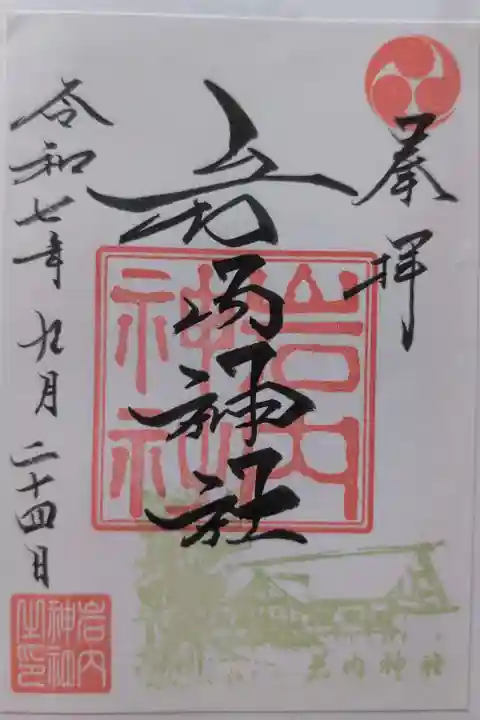 奉拝
岩内神社
令和七年九月二十四日
岩内神社
岩内神社之印
岩内神社